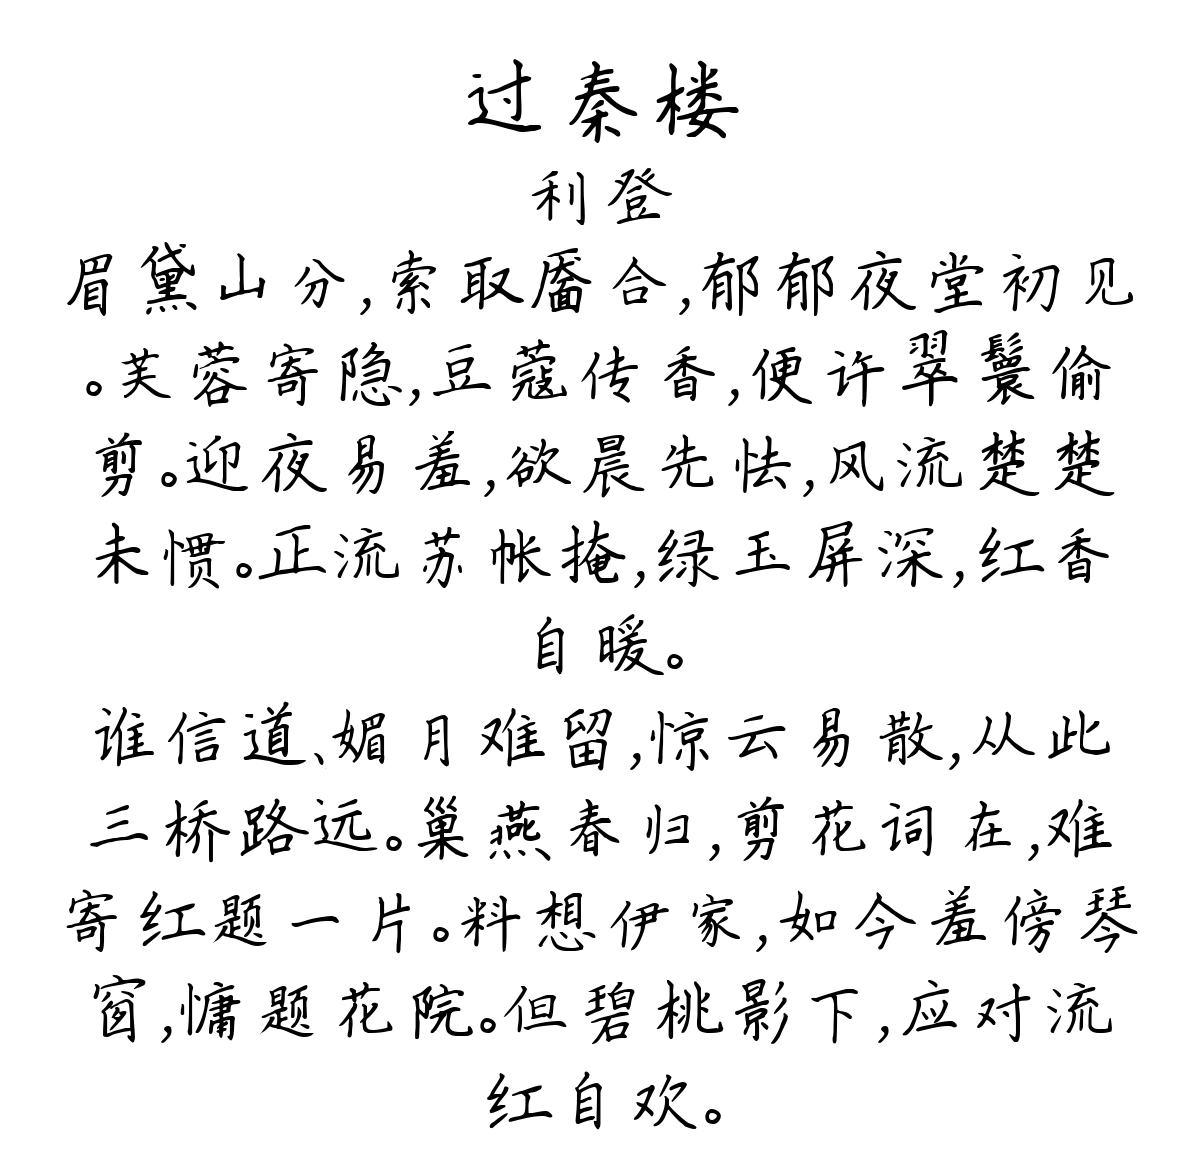 过秦楼
利登
眉黛山分,索取靥合,郁郁夜堂初见
。芙蓉寄隐,豆蔻传香,便许翠鬟偷
剪。迎夜易羞,欲晨先怯,风流楚楚
未惯。正流苏帐掩,绿玉屏深,红香
自暖。
谁信道、媚月难留,惊云易散,从此
三桥路远。巢燕春归,剪花词在,难
寄红题一片。料想伊家,如今羞傍琴
窗,慵题花院。但碧桃影下,应对流
红自欢。